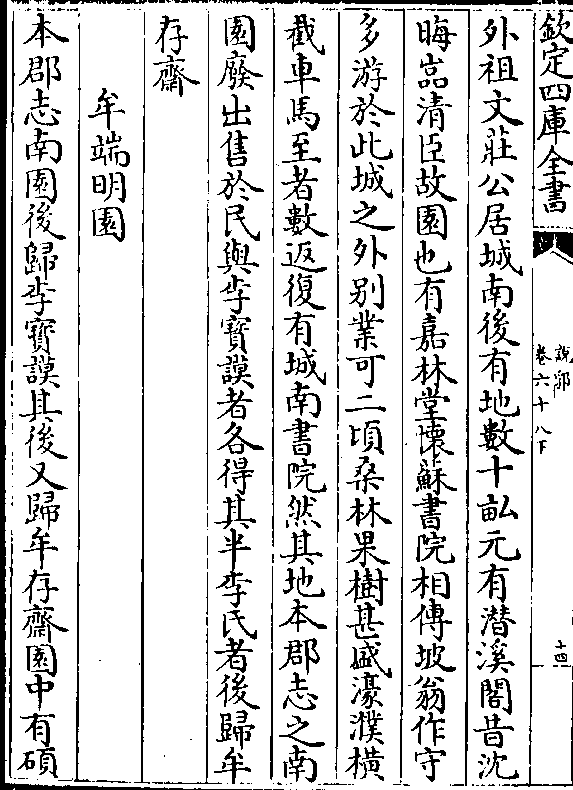 欽定四庫全書
說郛
卷六十八下
十四
外祖文莊公居城南後有地數十畝元有潛溪閣昔沈
晦嵓清臣故園也有嘉林堂懷蘇書院相傳坡翁作守
多游於此城之外别業可二頃桑林果樹甚盛濠濮橫
截車馬至者數返復有城南書院然其地本郡志之南
園廢出售於民與李寳謨者各得其半李氏者後歸牟
存齋
牟端明園
本郡志南園後歸李寳謨其後又歸牟存齋園中有碩